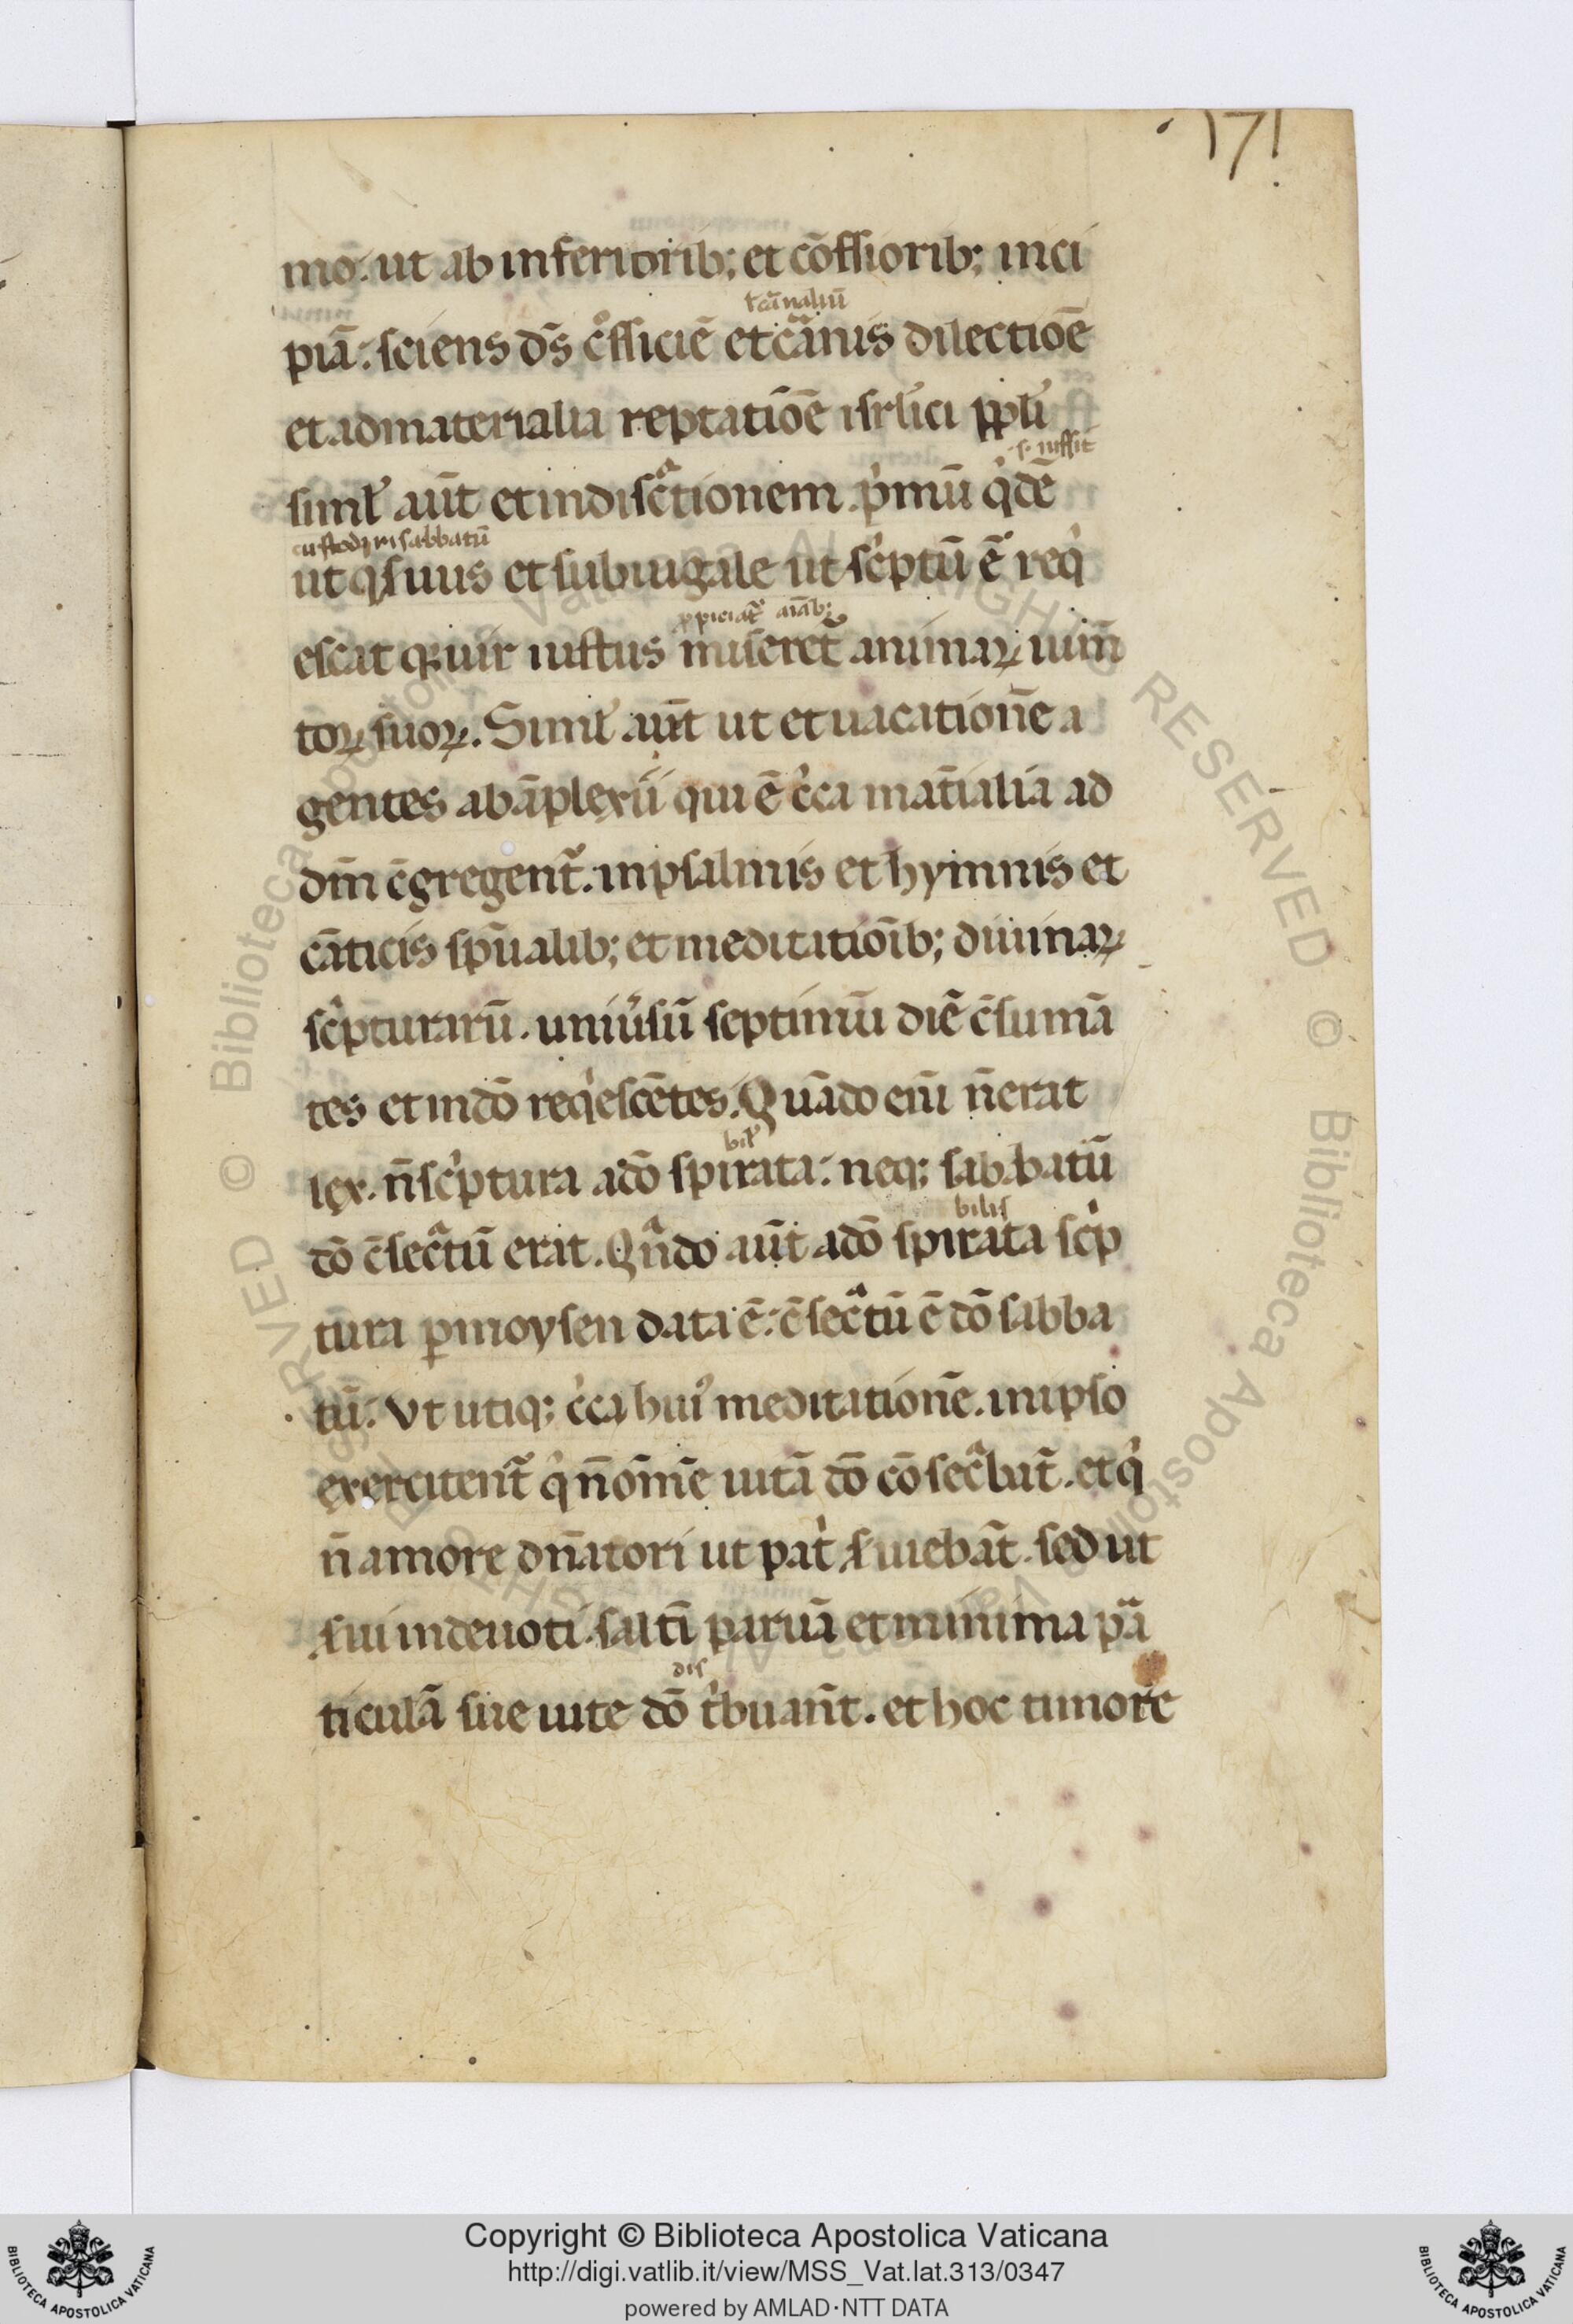 171
mō. ut ab inferiorib; et cōssiorib; inci
ł cānaliū
piā: sciens d̄s cͦssiciē et cānis dilectiōe
et ad materialia reptatiōe isrl̄ici ppl̄i
.s. iussit
simil̓ aūt et indiscᵃ̄tionem. pⁱmū qⁱdē
custodiri sabbatū
ut q; suus et subiugale ut scⁱptū ē reqⁱ
ppiciat᷑ aīab;
escat q; uir iustus miseret᷑ animaꝝ ium̄
toꝝ suoꝝ. Simil̓ aūt ut et uacationē a
gentes ab āplexu qui ē cⁱca mat̄ialia ad
dm̄ c̄gregent᷑. in psalmis et hymnis et
cāticis sp̄ualib; et meditatiōib; diuinaꝝ
scⁱpturarū. uniūsū septimū diē c̄sumā
tes et in dō reqⁱescētes. Quādo eni̅ n̄ erat
bil̓
lex. n̄ scⁱptura a dō spirata: neq; sabbatū
bilis
dō c̄secᵃtū erat. Qn̄do aūt a dō spirata scⁱp
tura ꝑ moysen data ē: c̄secᵃtū ē dō sabba
tū: Vt utiq; cⁱca hui᷒ meditationē. in ipso
exercitent᷑ qⁱ n̄ om̄e uitā dō cōsecᵃbūt. et qⁱ
n̄ amore dn̄atori ut patⁱ s̓uiebāt. sed ut
s̓ui indeuoti. saltī paruā et minima pᵃ̄
dis
ticulā sue uite dō tⁱbuant. et hoc timore
Copyright © Biblioteca Apostolica Vaticana
http://digi.vatlib.it/view/MSS_Vat.lat.313/0347
powered by AMLAD·NTT DATA
BIBLIOTECA APOSTOLICA VATICANA
BIBLIOTECA APOSTOLICA VATICANA